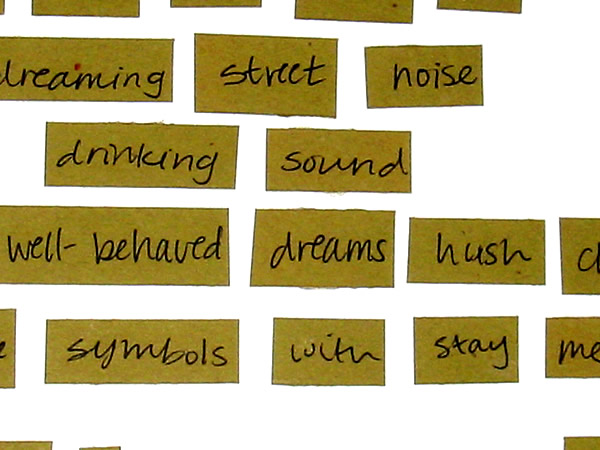 dreaming street noise
drinking sound
well-behaved dreams hush
symbols with stay